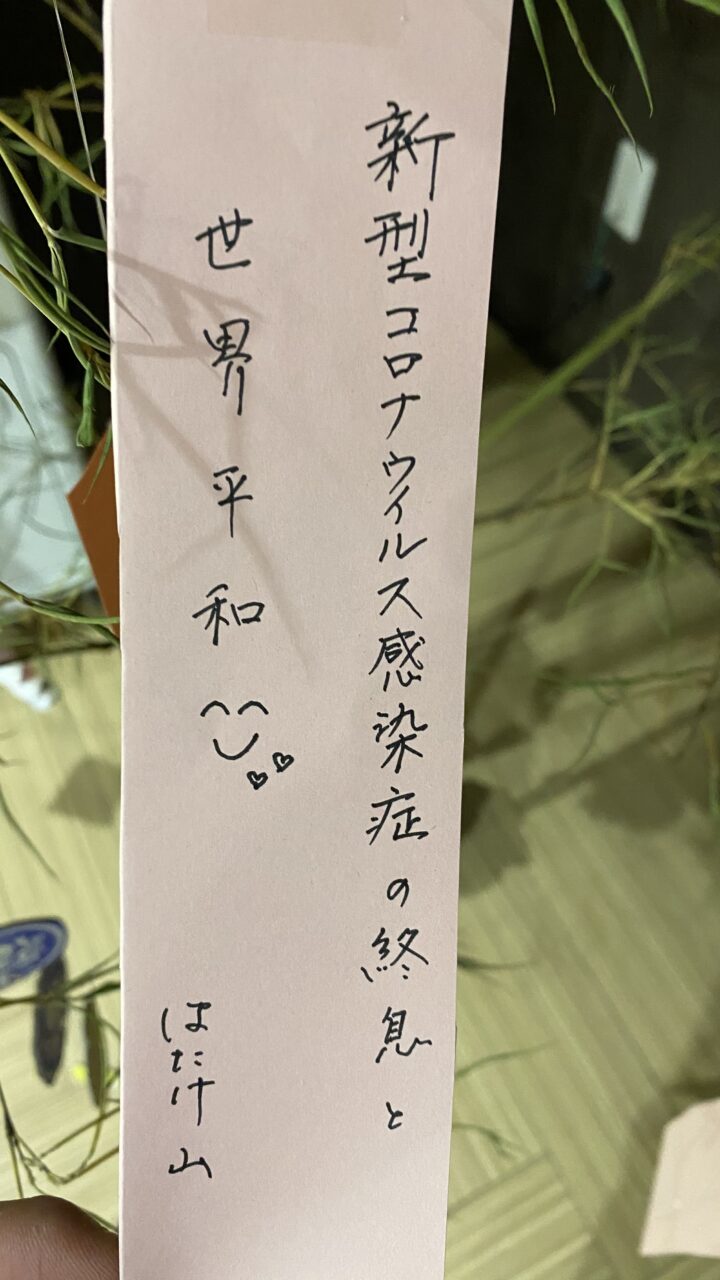 新型コロナウイルス感染症の終息と
世界平和
はたけ山